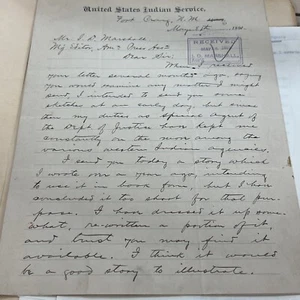 United States Indian Service.
Fort N. M.
May 5th 191
RECEIVED
Mr. E. D. Marshall
Mg Editor, Am
Dear Sir:
When I received
your letter several months ago, saying
you would examine any matter I might
send, I intended to send you some
sketches at an early day, but ever since
then my duties as special agent of
the Dept of Justice have kept me
constantly on the move among the
various western Indian agencies.
I send you today a story which
I wrote over a year ago, intending
to use it in book form, but I have
concluded it too short for that pur-
pose. I have dressed it up some-
what, re-written a portion of it,
and trust you may find it
available. I think it would
be a good story to illustrate.